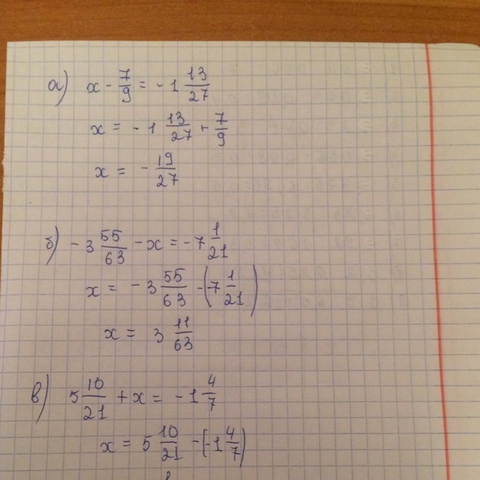 а) x - 7/9 = -1 13/27
x = -1 13/27 + 7/9
x = - 19/27
б) -3 55/63 - x = -7 1/21
x = -3 55/63 - (-7 1/21)
x = 3 11/63
в) 5 10/21 + x = -1 4/7
x = 5 10/21 - (-1 4/7)